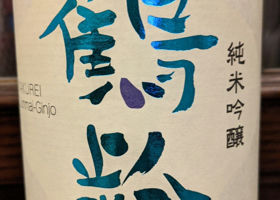 鶴齢
純米吟醸
KUREI
nmai-Ginjo